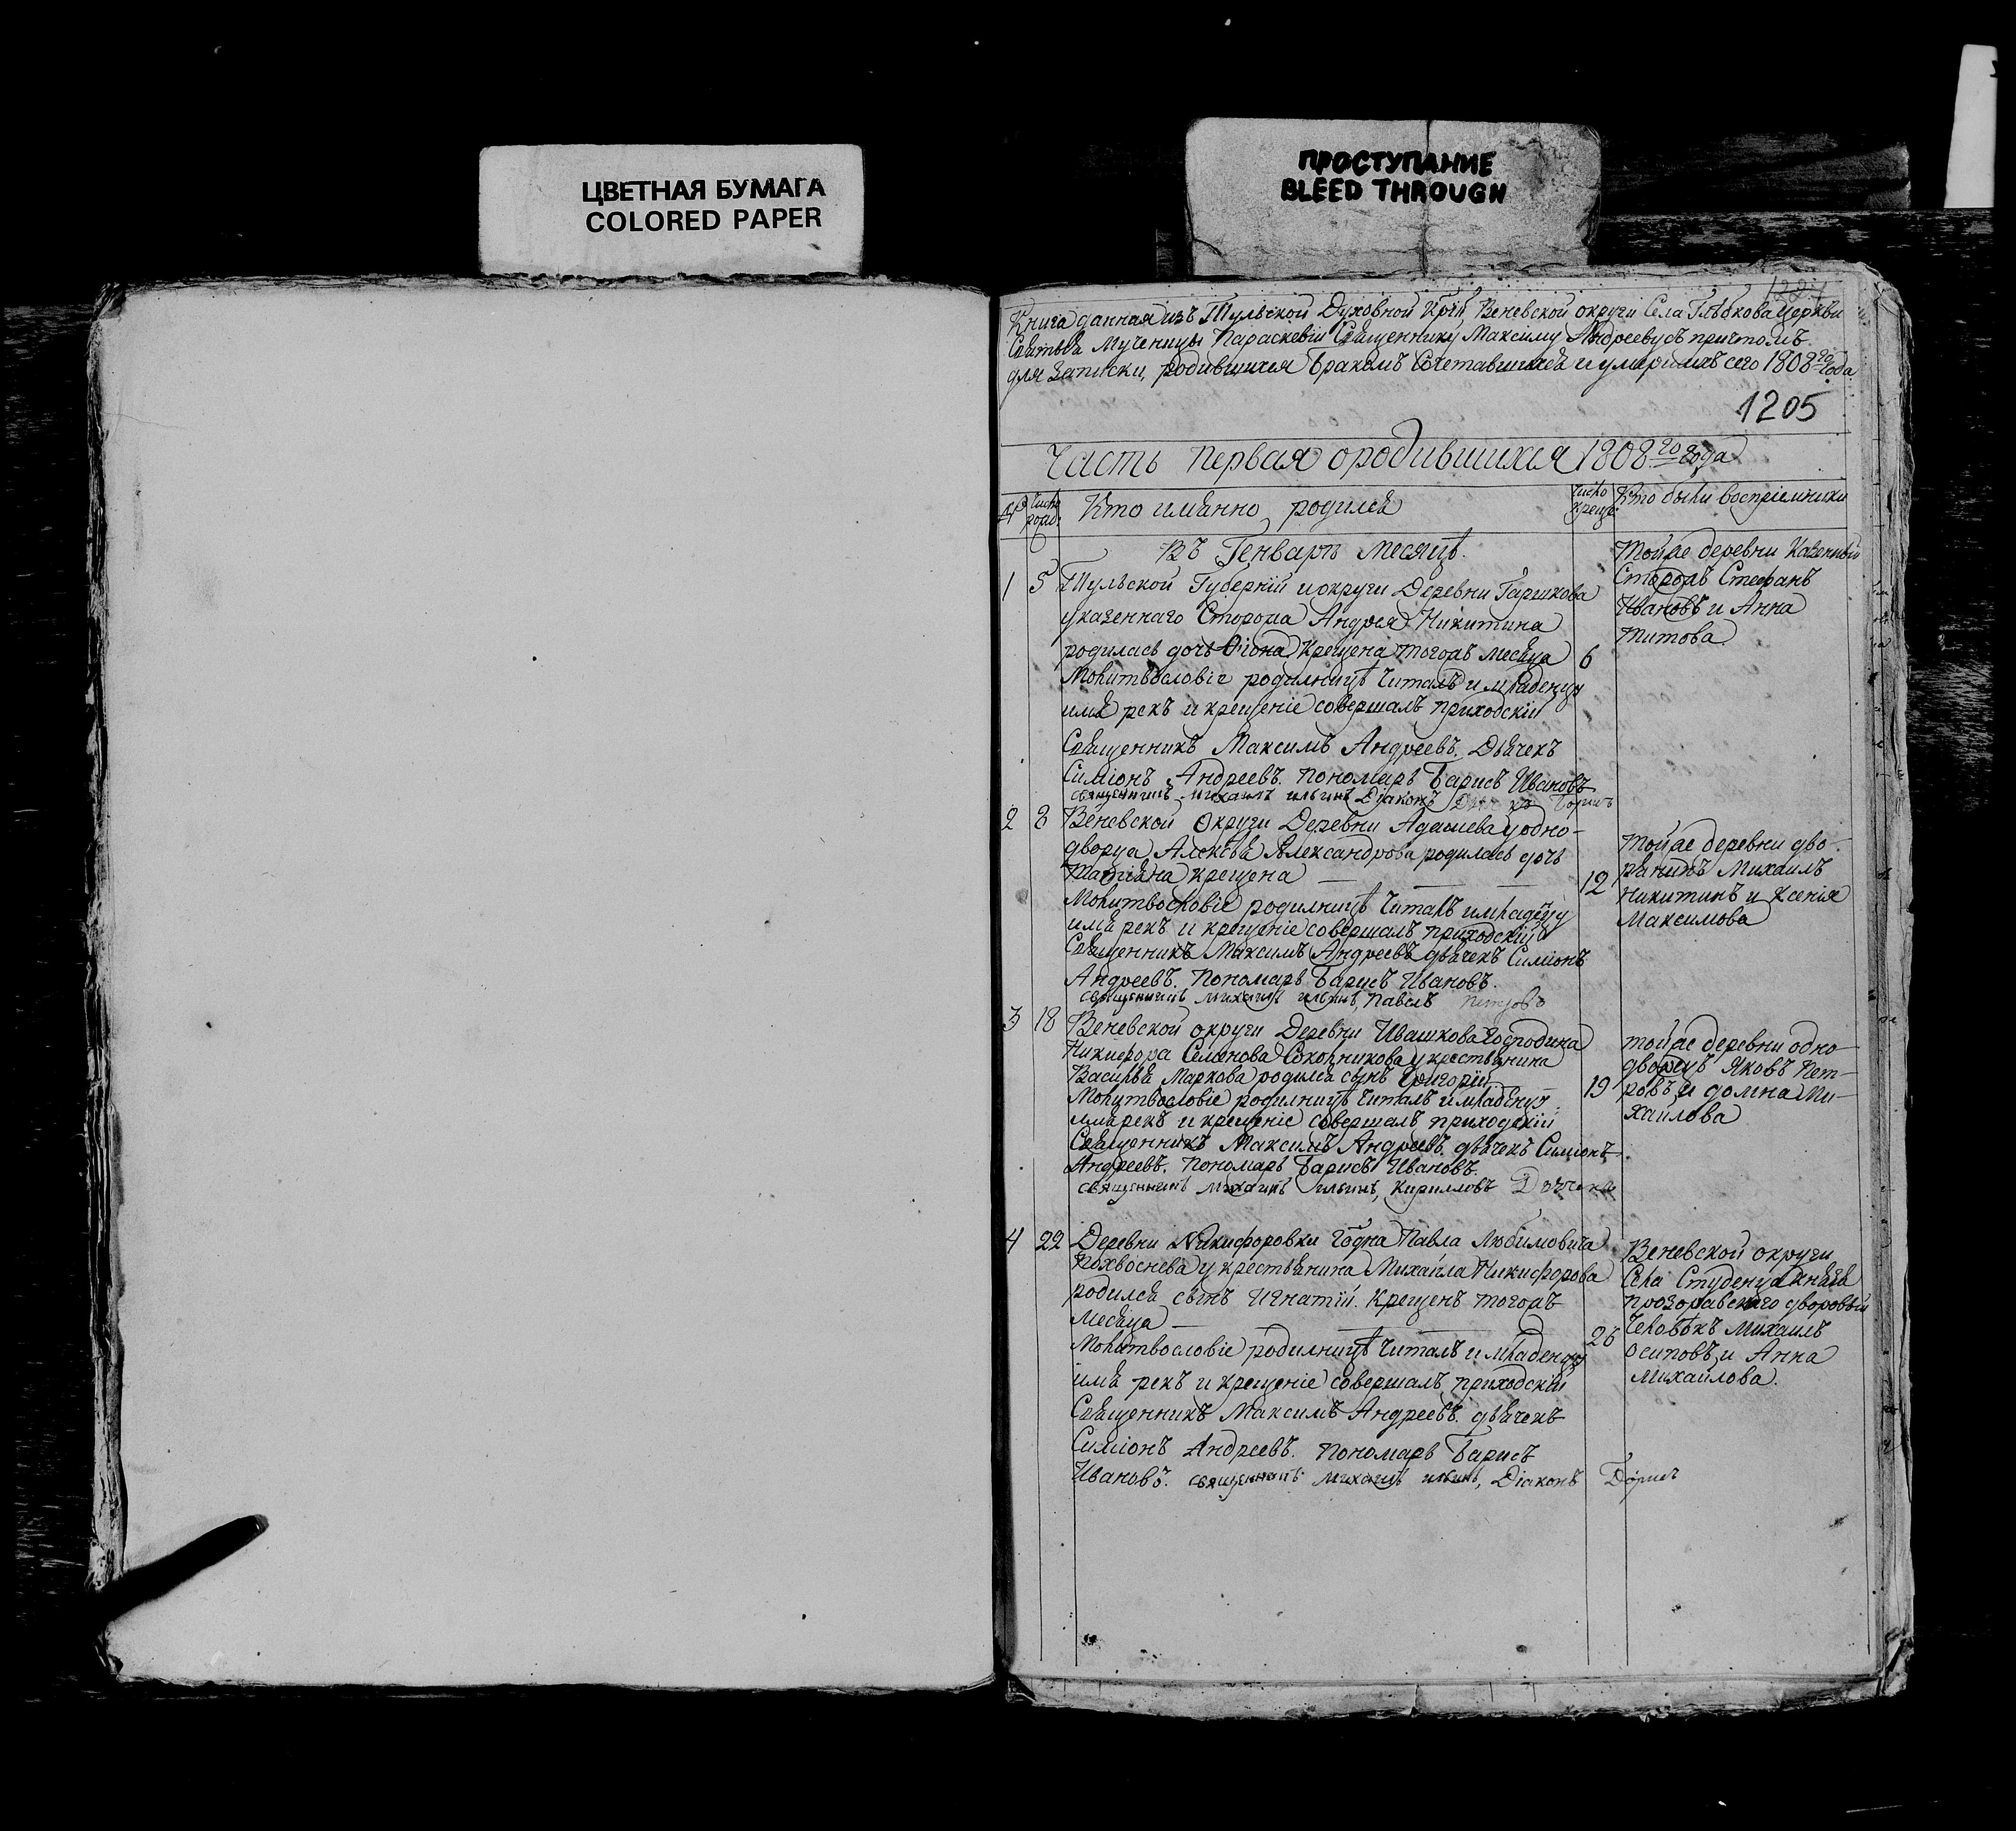 ЦВЕТНАЯ БУМАГА
COLORED PAPER
ПРОСТУПАНИЕ
BLEED THROUGH
Книга данная изъ Тульской Духовной Веневской округи Села Глѣбкова Церкви
Святыя Мученицы Параскевіи Священнику Максиму Андрееву съ причтомъ
для записки, родившихся бракомъ сочетавшихся и умершихъ сего 1808го года.
1205
Часть первая о родившихся 1808го года
№ число рожд: Кто имянно родился число крещ: Кто были воспріемники
Въ Генварѣ месяцѣ.
1 5 Тульской Губерніи и округи Деревни Гаршкова
у казеннаго Сторожа Андрея Никитина
родилась дочь Крещена тогожъ месяца 6
Молитвословіе родилницѣ читалъ и младенцу
имя рекъ и крещеніе совершалъ приходскій
Священникъ Максимъ Андреевъ. Дьячекъ
Симіонъ Андреевъ. Пономарь Барисъ Ивановъ
священникъ михаилъ ильинъ Діаконъ Борисъ
Тойже деревни Казенный
Сторожъ Стефанъ
Ивановъ и Анна
Титова
2 8 Веневской округи Деревни Адашева у одно-
дворца Алексѣя Александрова родилась дочь
Татіяна крещена 12
Молитвословіе родилницѣ читалъ и младенцу
имя рекъ и крещеніе совершалъ приходскій
Священникъ Максимъ Андреевъ дьячекъ Симіонъ
Андреевъ. Пономарь Барисъ Ивановъ.
священникъ михаилъ ильинъ, Павелъ Петровъ
Тойже деревни дво-
ранинъ Михаилъ
Никитинъ и Ксенія
Максимова
3 18 Веневской округи Деревни Ивашкова Господина
Никифора Семенова Сокольникова у крестьянина
Василья Маркова родился сынъ Григорій 19
Молитвословіе родилницѣ читалъ и младенцу
имя рекъ и крещеніе совершалъ приходскій
Священникъ Максимъ Андреевъ. дьячекъ Симіонъ
Андреевъ. Пономарь Барисъ Ивановъ.
священникъ михаилъ ильинъ, Кирилловъ
тойже деревни одно-
дворецъ Яковъ Пет-
ровъ и домна Ми-
хаилова
4 22 Деревни Никифоровки Гдна Павла Любимовича
Похвоснева у крестьянина Михаила Никифорова
родился сынъ Игнатій. Крещенъ тогожъ
месяца 26
Молитвословіе родилницѣ читалъ и младенцу
имя рекъ и крещеніе совершалъ приходскій
Священникъ Максимъ Андреевъ. дьячекъ
Симіонъ Андреевъ. Пономарь Барисъ
Ивановъ. священникъ михаилъ ильинъ, Діаконъ Борисъ
Веневской округи
Села Студенца князя
прозоравскаго дворовый
человѣкъ Михаилъ
Осиповъ и Анна
Михаилова.